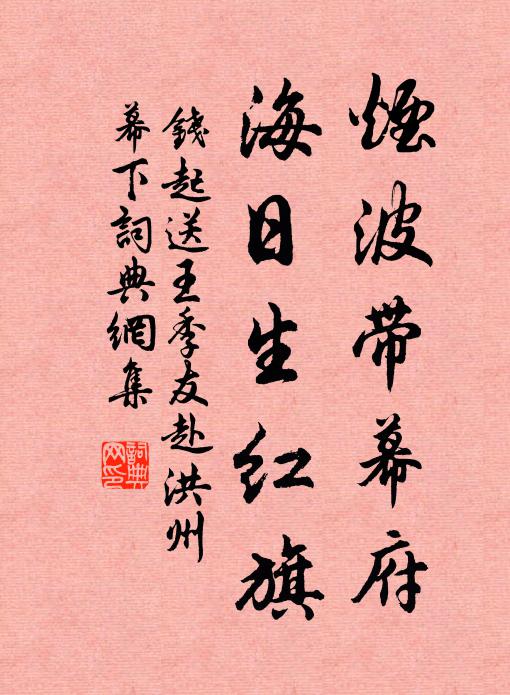 煙波带幕府
海日生红旗
錢起送王季友赴洪州
幕下詞典網集
詞典
网印